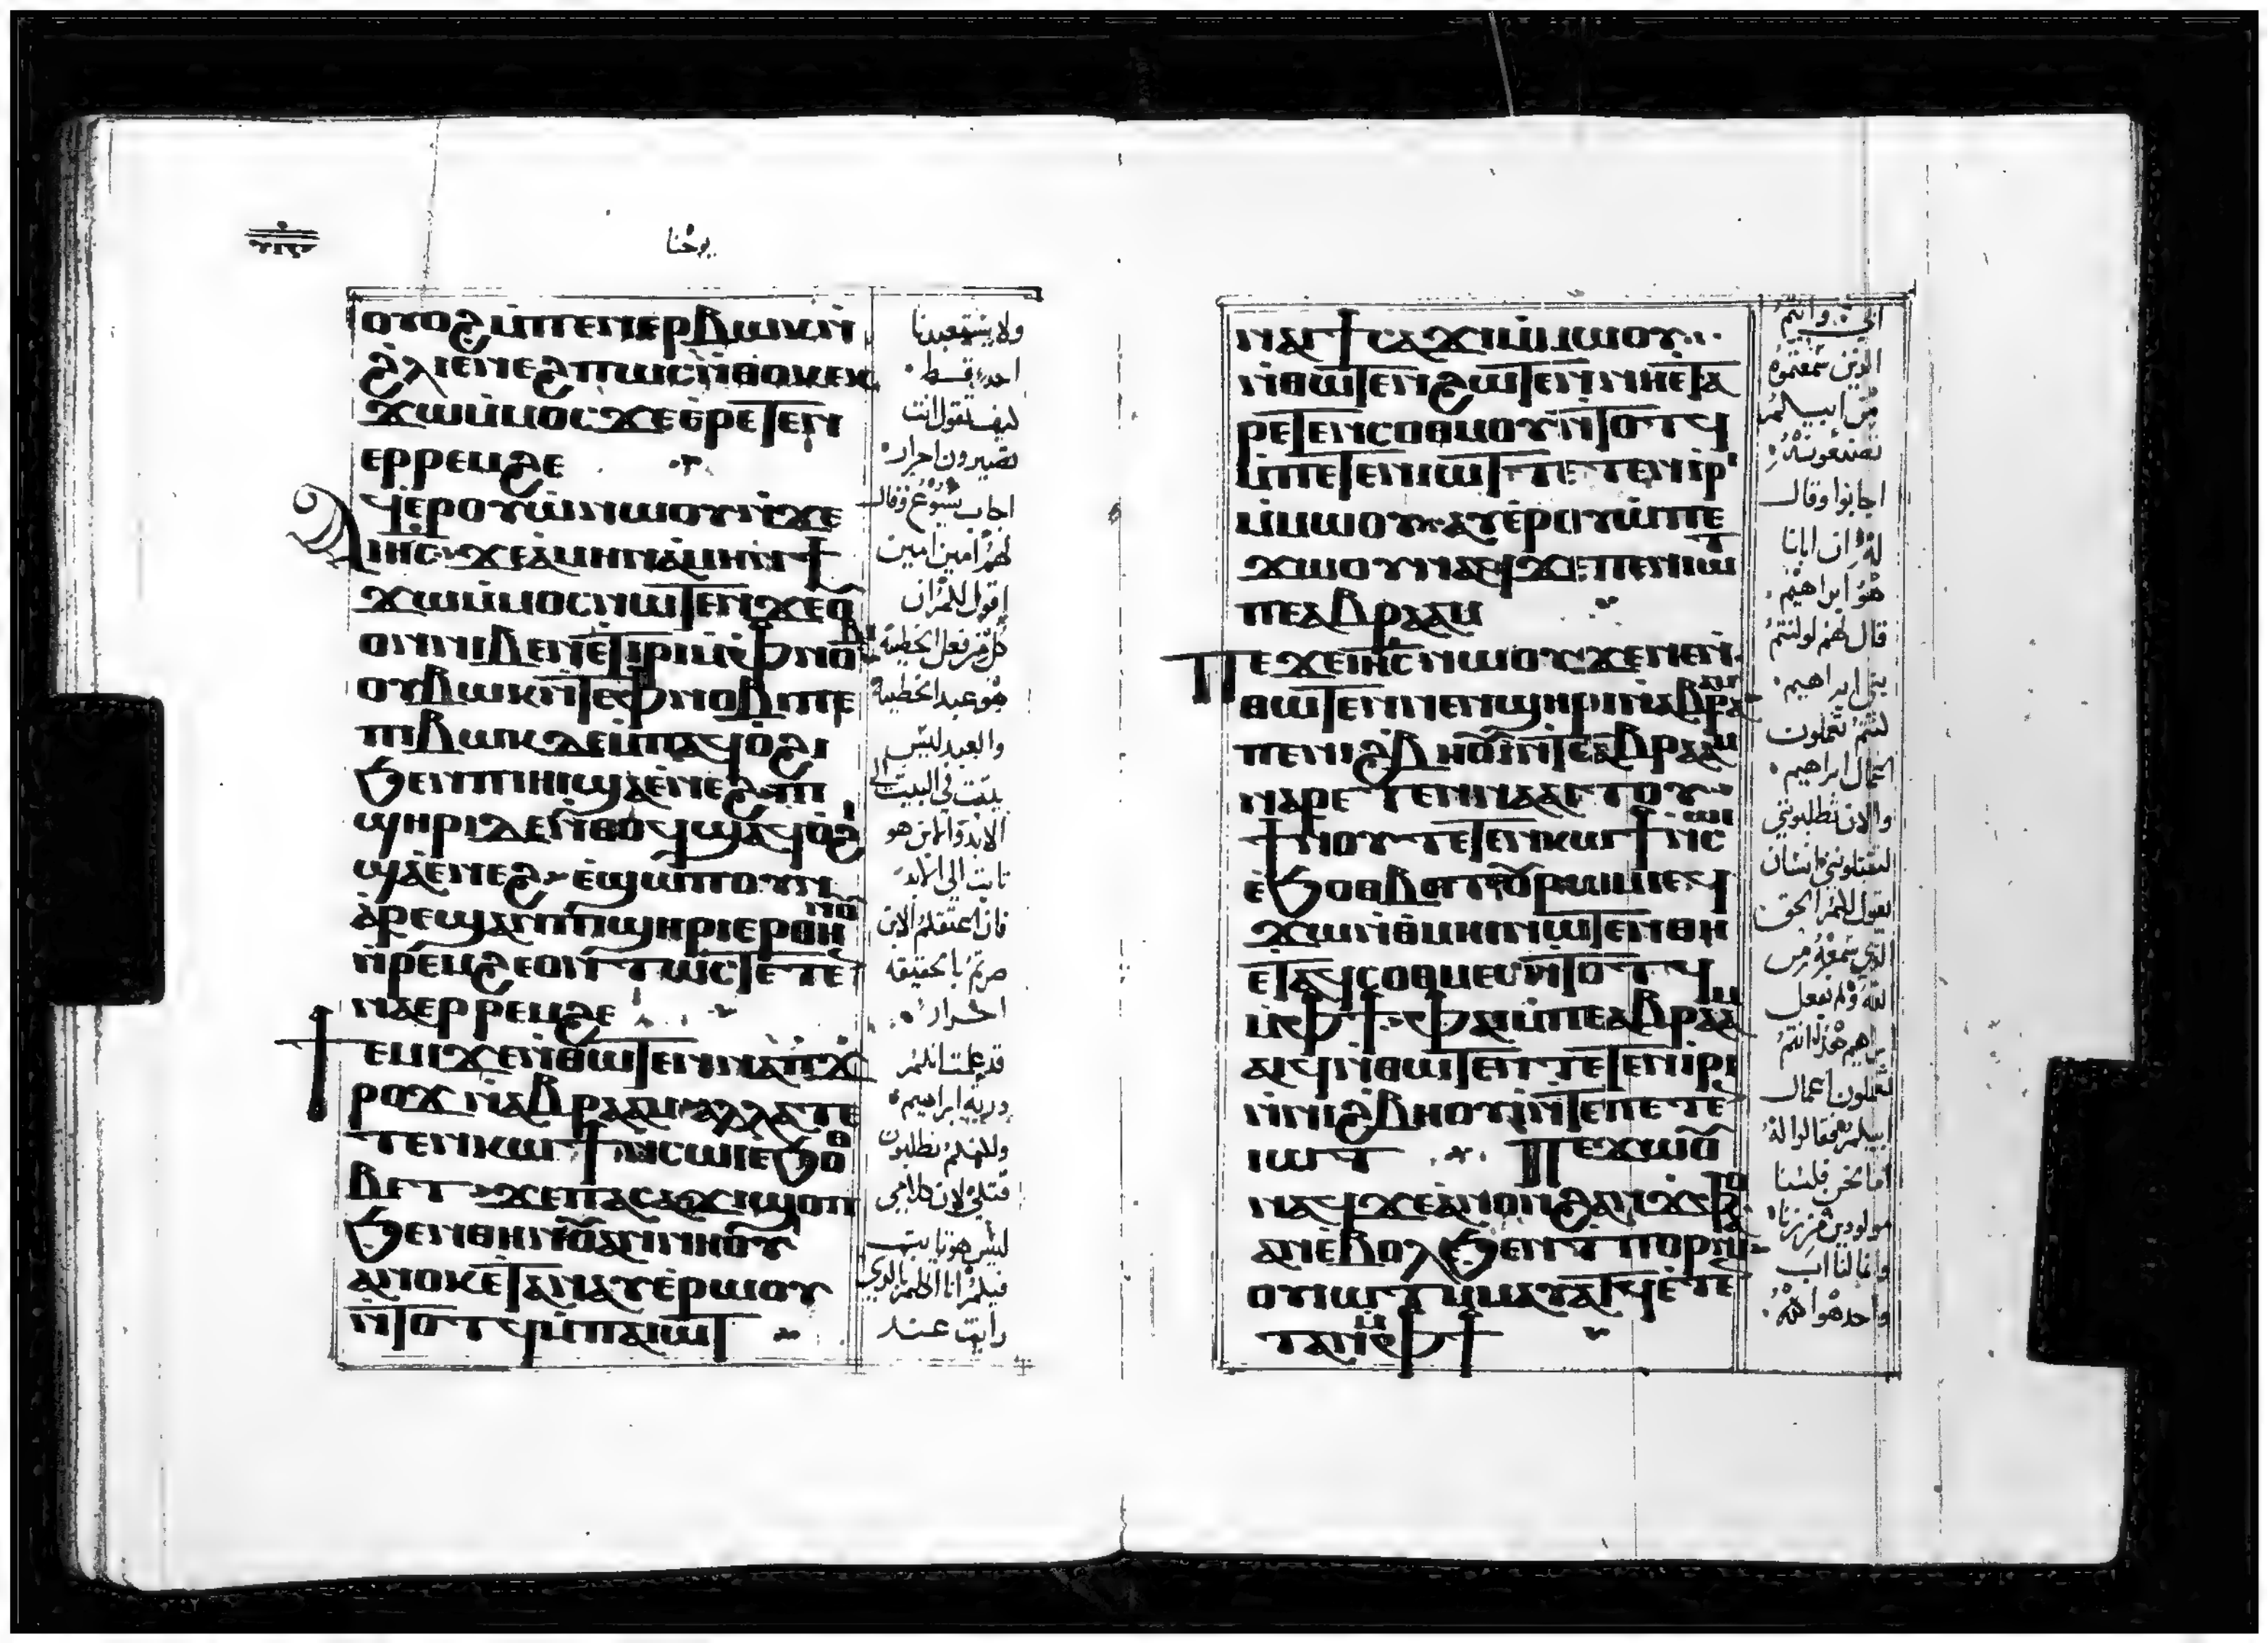 يوحنا
ⲟⲩⲟϩ ⲙ̀ⲡⲉⲛⲉⲣⲃⲱⲕ ⲛ̀
ϩⲗⲓ ⲉⲛⲉϩ ⲡⲱⲥ ⲛ̀ⲑⲟⲕ ⲕ
ϫⲱⲙ̀ⲙⲟⲥ ϫⲉ ⲉ̀ⲣⲉⲧⲉⲛ
ⲉⲣⲣⲉⲙϩⲉ
ⲁϥⲉⲣⲟⲩⲱ̀ ⲛⲱⲟⲩ ⲛ̀ϫⲉ
ⲓⲏⲥ ϫⲉ ⲁ̀ⲙⲏⲛ ⲁ̀ⲙⲏⲛ ϯ
ϫⲱⲙ̀ⲙⲟⲥ ⲛⲱⲧⲉⲛ ϫⲉ ⲟⲩ
ⲟⲛ ⲛⲓⲃⲉⲛ ⲉⲧⲓⲣⲓ ⲙ̀ⲫⲛⲟⲃⲓ
ⲟⲩⲃⲱⲕ ⲛ̀ⲧⲉ ⲫⲛⲟⲃⲓ ⲡⲉ
ⲡⲓⲃⲱⲕ ⲇⲉ ⲙ̀ⲡⲁϥⲟ̀ϩⲓ
ϧⲉⲛ ⲡⲓⲏⲓ ϣⲁ ⲉ̀ⲛⲉϩ ⲡⲓ
ϣⲏⲣⲓ ⲇⲉ ⲛ̀ⲑⲟϥ ϣⲁϥⲟ̀ϩⲓ
ϣⲁ ⲉ̀ⲛⲉϩ ⲉ̀ϣⲱⲡ ⲟⲩⲛ
ⲁ̀ⲣⲉϣⲁⲛ ⲡϣⲏⲣⲓ ⲉⲣ ⲑⲏⲛⲟⲩ
ⲛ̀ⲣⲉⲙϩⲉ ⲟⲛⲧⲱⲥ ⲧⲉⲧⲉ
ⲛⲁⲉⲣⲣⲉⲙϩⲉ
ϯⲉⲙⲓ ϫⲉ ⲛ̀ⲑⲱⲧⲉⲛ ⲛⲁ ⲡϫ
ⲣⲟϫ ⲛ̀ⲁⲃⲣⲁⲁⲙ ⲁⲗⲗⲁ ⲧⲉ
ⲧⲉⲛⲕⲱϯ ⲛ̀ⲥⲱⲓ ⲉϧⲟⲑ
ⲃⲉⲧ ϫⲉ ⲡⲁⲥⲁϫⲓ ϣⲟⲡ
ϧⲉⲛ ⲑⲏⲛⲟⲩ ⲁⲛ ⲛⲏ
ⲁⲛⲟⲕ ⲉⲧⲁⲛⲁⲩ ⲉ̀ⲣⲱⲟⲩ
ⲛ̀ⲧⲟⲧϥ ⲙ̀ⲡⲁⲓⲱⲧ
ولا يستعبدنا
احد قط
كيف تقول انت
تصيرون احرار
اجاب يسوع وقال
لهم امين امين
اقول لكم ان
كل من فعل الخطية
هو عبد الخطية
والعبد ليس
يثبت في البيت الى
الابد والابن هو
ثابت الى الابد
فان اعتقكم الابن
صرتم بالحقيقه
احرار
قد علمت انكم
ذرية ابراهيم
ولكنكم تطلبون
قتلي لان كلامي
ليس هو ثابت
فيكم انا اكلم بالذي
رايت عند
ⲛⲁⲓ ϯⲥⲁϫⲓ ⲙ̀ⲙⲱⲟⲩ
ⲛ̀ⲑⲱⲧⲉⲛ ϩⲱⲧⲉⲛ ⲛⲏ ⲉⲧⲁ
ⲣⲉⲧⲉⲛⲥⲟⲑⲙⲟⲩ ⲛ̀ⲧⲟⲧϥ
ⲙ̀ⲡⲉⲧⲉⲛⲓⲱⲧ ⲧⲉⲧⲉⲛⲓⲣⲓ
ⲙ̀ⲙⲱⲟⲩ ⲁⲩⲉⲣⲟⲩⲱ̀ ⲡⲉ
ϫⲱⲟⲩ ⲛⲁϥ ϫⲉ ⲡⲉⲛⲓⲱⲧ
ⲡⲉ ⲁⲃⲣⲁⲁⲙ
ⲡⲉϫⲉ ⲓⲏⲥ ⲛⲱⲟⲩ ϫⲉ ⲛⲉ ⲛ̀
ⲑⲱⲧⲉⲛ ⲛⲉⲛϣⲏⲣⲓ ⲛ̀ⲁⲃⲣⲁⲁⲙ
ⲡⲉ ⲛⲓϩⲃⲏⲟⲩⲓ̀ ⲛ̀ⲧⲉ ⲁⲃⲣⲁⲁⲙ
ⲛⲁⲣⲉⲧⲉⲛⲛⲁⲁⲓⲧⲟⲩ
ϯⲛⲟⲩ ⲧⲉⲧⲉⲛⲕⲱϯ ⲛ̀ⲥⲱⲓ
ⲉ̀ϧⲟⲑⲃⲉⲧ ⲟⲩⲣⲱⲙⲓ ⲉϥ
ϫⲱ ⲛ̀ⲑⲙⲏⲓ ⲛⲱⲧⲉⲛ ⲑⲏ
ⲉⲧⲁϥⲥⲟⲑⲙⲉⲥ ⲛ̀ⲧⲟⲧϥ
ⲙ̀ⲫϯ ⲫⲁⲓ ⲙ̀ⲡⲉ ⲁⲃⲣⲁⲁⲙ
ⲁⲓϥ ⲛ̀ⲑⲱⲧⲉⲛ ⲧⲉⲧⲉⲛⲓⲣⲓ
ⲛ̀ⲛⲓϩⲃⲏⲟⲩⲓ̀ ⲛ̀ⲧⲉ ⲡⲉⲧⲉ
ⲓⲱⲧ ⲡⲉϫⲱⲟⲩ
ⲛⲁϥ ϫⲉ ⲁⲛⲟⲛ ϩⲁⲛϫⲫⲟ
ⲁⲛ ⲉ̀ⲃⲟⲗϧⲉⲛ ϯⲡⲟⲣⲛⲓⲁ
ⲟⲩⲓⲱⲧ ⲙ̀ⲙⲁⲩⲁⲧϥ ⲉ̀ⲧⲉ
ⲛⲧⲁⲛ ⲫϯ
ابي وانتم
الذين سمعتموه
من ابيكم
تصنعونه
اجابوا وقالـ
له ان ابانا
هو ابراهيم
قال لهم لو كنتم
بني ابراهيم
كنتم تعملون
اعمال ابراهيم
والان تطلبوني
لتقتلوني انسان
يقول لكم الحق
الذي سمعه من
الله ولم يفعل
ابراهيم هذا انتم
تعملون اعمال
ابيكم فقالوا له
اما نحن فلسنا
مولودين من زنا
وانما لنا اب
واحد هو الله